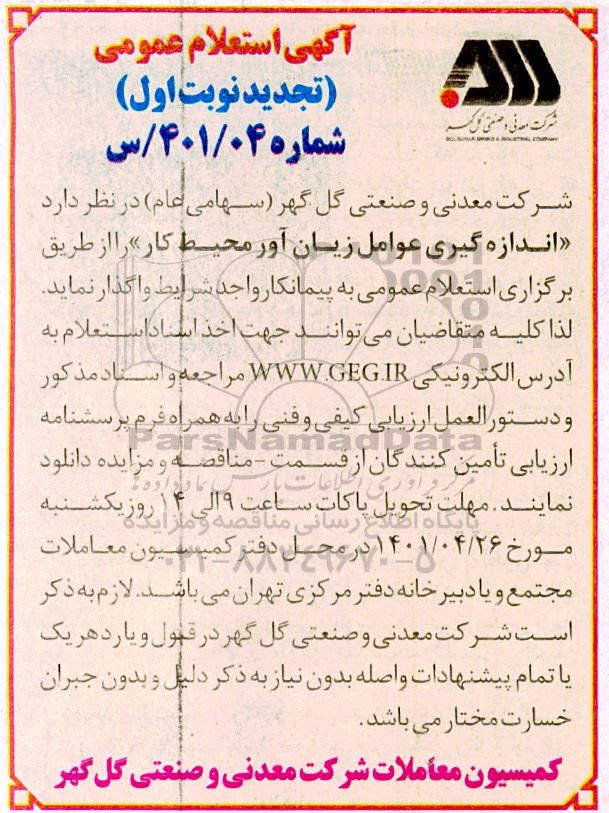 آگهی استعلام عمومی
(تجدید نوبت اول)
شماره ۴۰۱/۰۴/س
شرکت معدنی و صنعتی گل گهر
GOLGOHAR MINING & INDUSTRIAL COMPANY
شرکت معدنی و صنعتی گل گهر (سهامی عام) در نظر دارد
«اندازه گیری عوامل زیان آور محیط کار» را از طریق
برگزاری استعلام عمومی به پیمانکار واجد شرایط واگذار نماید.
لذا کلیه متقاضیان می توانند جهت اخذ اسناد استعلام به
آدرس الکترونیکی WWW.GEG.IR مراجعه و اسناد مذکور
و دستورالعمل ارزیابی کیفی و فنی را به همراه فرم پرسشنامه
ارزیابی تأمین کنندگان از قسمت -مناقصه و مزایده دانلود
نمایند. مهلت تحویل پاکات ساعت ۹ الی ۱۴ روز یکشنبه
مورخ ۱۴۰۱/۰۴/۲۶ در محل دفتر کمیسیون معاملات
مجتمع و یا دبیرخانه دفتر مرکزی تهران می باشد. لازم به ذکر
است شرکت معدنی و صنعتی گل گهر در قبول و یا رد هر یک
یا تمام پیشنهادات واصله بدون نیاز به ذکر دلیل و بدون جبران
خسارت مختار می باشد.
کمیسیون معاملات شرکت معدنی و صنعتی گل گهر
ParsNamadData
مرکز فرآوری اطلاعات پارس نماد داده ها
پایگاه اطلاع رسانی مناقصه و مزایده
۰۲۱-۸۸۳۴۹۶۷۰-۵